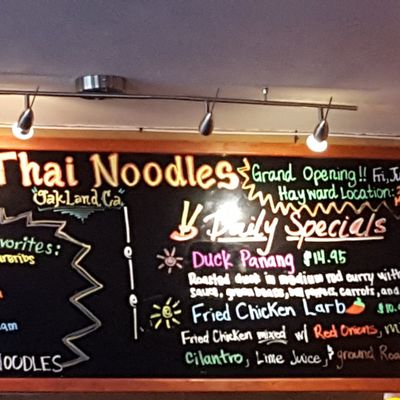 Thai Noodles
"Oakland, Ca."
Grand Opening!! Fri, Ju
Hayward Location:
Daily Specials
Duck Panang $14.95
Roasted duck in medium red curry with
Sauce, green beans, bell peppers, carrots, and
Fried Chicken Larb
Fried Chicken mixed w/ Red Onions,
Cilantro, Lime Juice, & ground Roa
vorites:
NOODLES